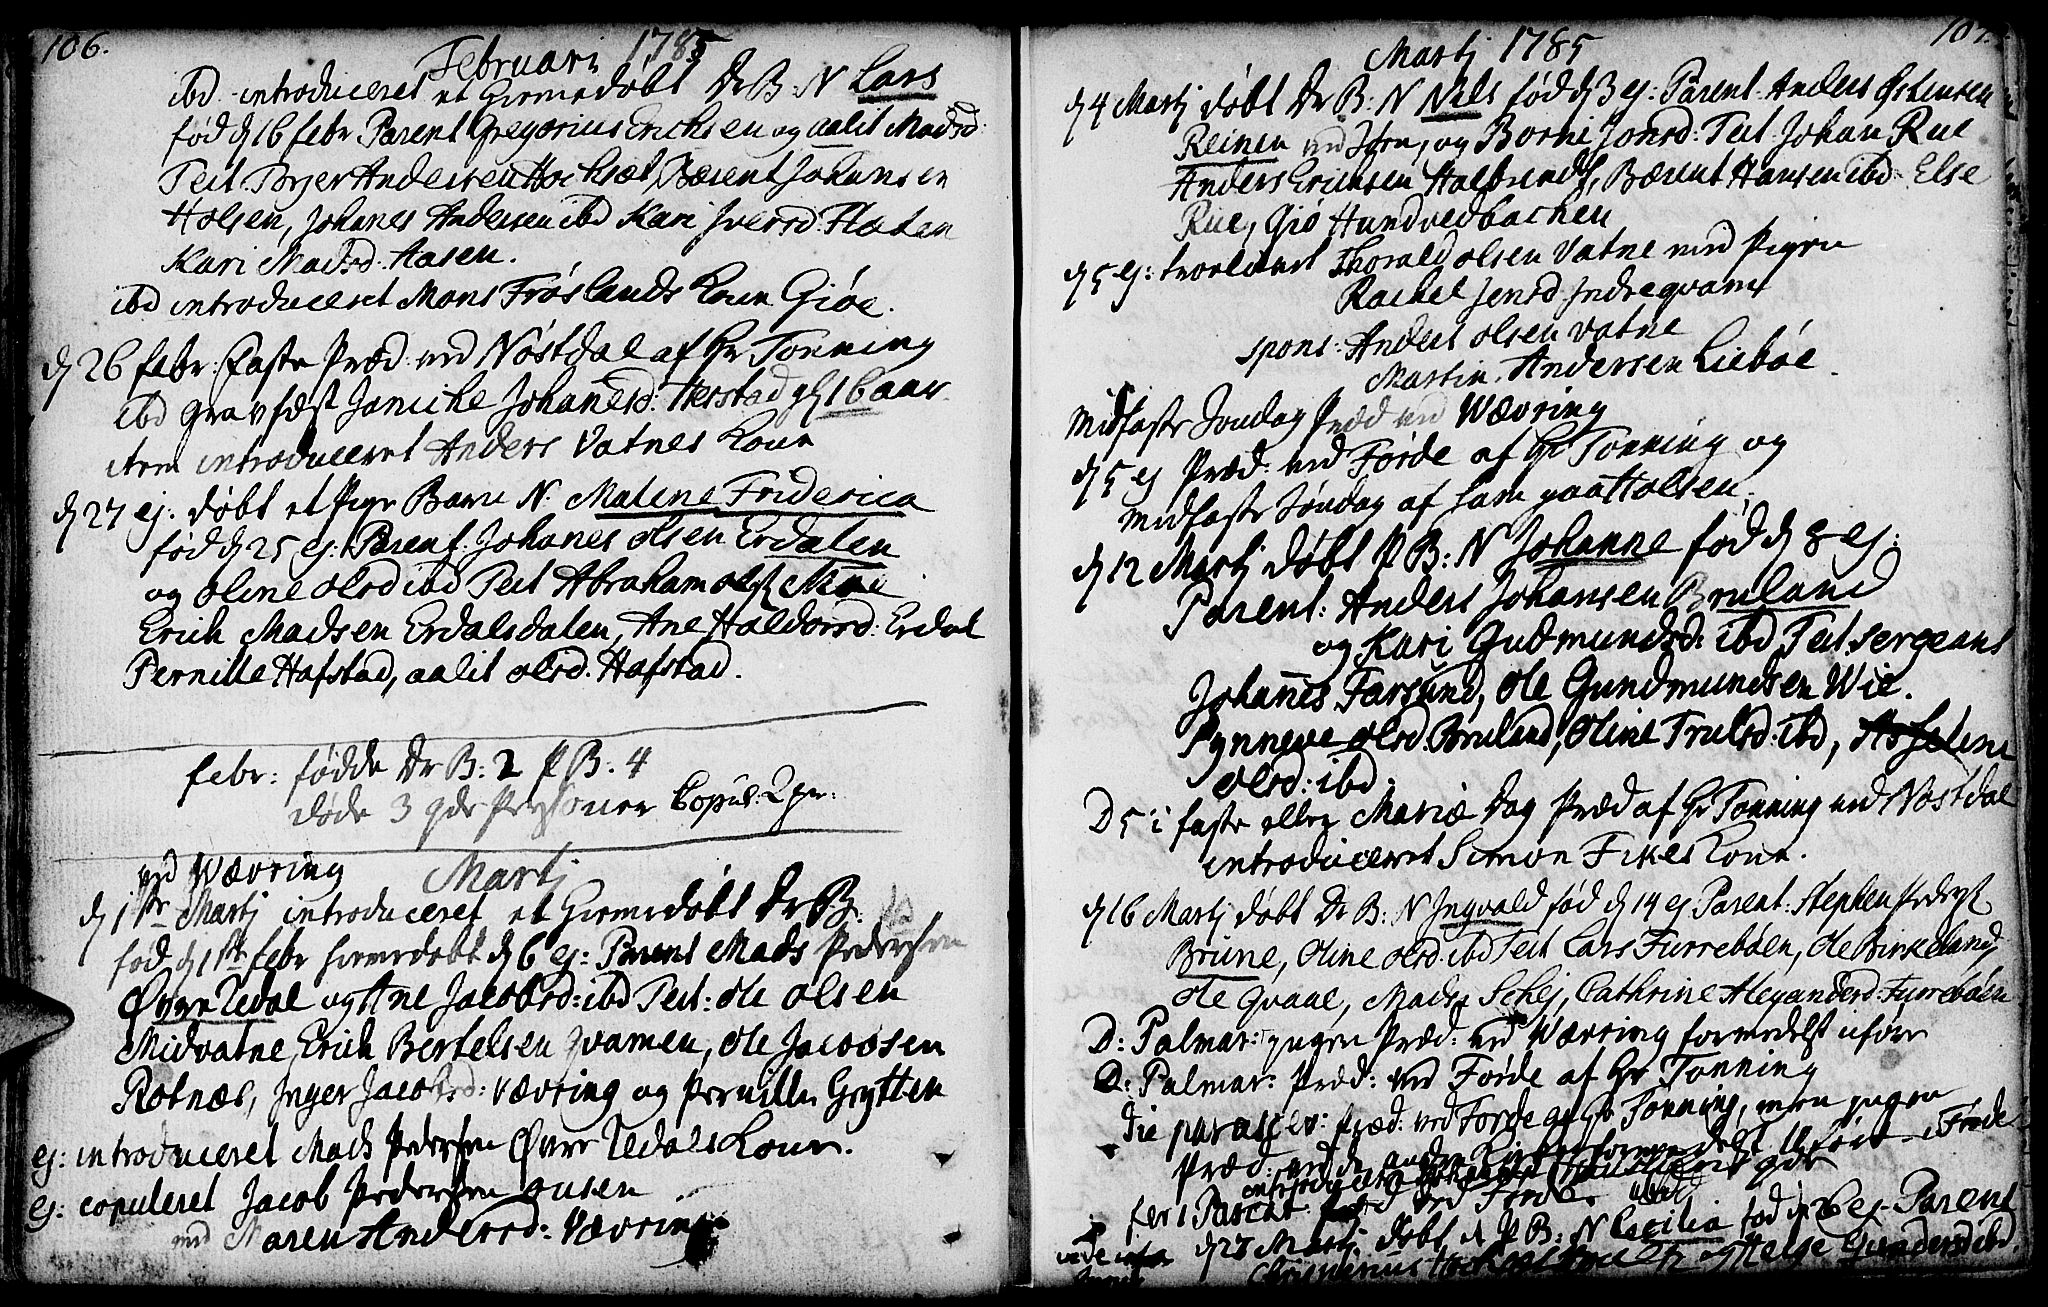 106.
Februari 1785
ibd introduceret et hiemedøbt Dr B: N Lars
fød d 16 febr Parent Gregorius Erichsen og aalit Madsd:
Test. Byer Andersen Hochset, Bærent Johansen
Holsen, Johanes Andersen ibd Kari Iversd: Flaten
Kari Madsd. Aasen.
ibd introduceret Mons Frøslands Kone Giøe.
d 26 febr: Faste Præd: ved Nøstdal af Hr Tonning
ibd gravfæst Joniche Johanesd: Herstad gl 16 aar
item introduceret Anders Vatnes Kone
d 27 ej: døbt et Pige Barn N. Malene Friderica
fød d 25 ej: Parent. Johanes Olsen Erdalen
og Oline Olsd ibd Test Abraham Moe
Erich Madsen Erdalsdalen, Ane Haldorsd: Erdal
Pernille Hafstad, aalit Olsd. Hafstad.
febr: fødde Dr B: 2 P B. 4
døde 3 gde Personer Copul: 2 pr.
ved Wævring Martj
d 1ste Martj introduceret et hiemedøbt Dr B:
fød d 1ste febr hiemedøbt d 6 ej: Parent Mads Pedersen
Øvre Uedal og Ane Jacobsd: ibd Test: Ole Olsen
Midvatne, Erich Bertelsen Qvamen, Ole Jacobsen
Rotnæs, Inger Jacobsd: Wævring og Pernille Grytten
ej: introduceret Mads Pedersen Øvre Uedals Kone.
ej: copuleret Jacob Pedersen
med Maren Andersd: Wævring
107.
Martj 1785
d 4 Martj døbt Dr B: N Niels fød d 3 ej: Parent. Anders Østensen
Reinen ved Horn, og Borni Jonsd: Test. Johan Rue
Anders Erichsen Halbrends, Bærent Hansen ibd Else
Rue, Giø Hundvedbachen
d 5 ej: troelovet Thorald Olsen Vatne med Pigen
Rachel Jensd Indreqvam
spons: Anders Olsen Vatne
Martin Andersen Liebøe.
Midfaste Søndag Præd ved Wævring
d 5 ej Præd: ved Førde af Hr Tonning og
Midfaste Søndag af ham paa Holsen.
d 12 Martj døbt P B: N Johanne fød d 8 ej:
Parent: Anders Johansen Bruland
og Kari Gudmundsd: ibd Test Sergeant
Johannes Farsund, Ole Gundmundsen Wie.
Synneve Olsd: Bruland, Oline Trulsd: ibd,
Olsd: ibd.
D 5 i faste eller Mariæ Dag Præd af Hr Tonning ved Nøstdal
introduceret Simon Fikes Kone.
d 16 Martj døbt Dr B: N Ingvald fød d 14 ej Parent: Stephen Peders:
Brune, Oline Olsd ibd Test Lars Furrebøen, Ole Birkeland,
Ole Qvaal, Mads Schej, Cathrine Alexandersd: Furrebøen
D: Palmar: ingen Præd: ved Wævring formedelst uføre
D: Palmar: Præd: ved Førde af Hr Tonning
Die parascev: Præd: ved Førde af Hr Tonning, men ingen
Præd: ved de andre Kirker formedelst uføre i Førde
fer 1 Paschat: ved Førde
d 27 Martj døbt P B: N Cecilia fød d 26 ej. Parent
og Helge Gundersd ibd.